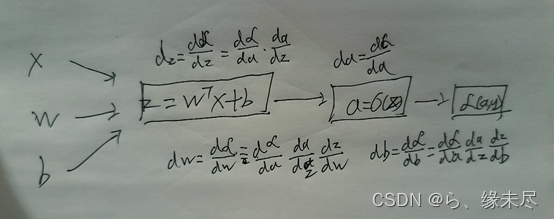 dz = dL/dz = dL/da · da/dz
da = dL/da
x
w
b
z = wᵀx+b
a = σ(z)
L(a,y)
dw = dL/dw = dL/da da/dz dz/dw
db = dL/db = dL/da da/dz dz/db
CSDN @ら、缘未尽